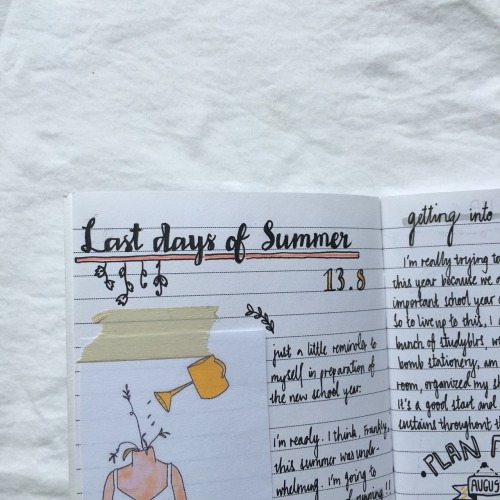 Last days of Summer
13.8
just a little reminder to
myself in preparation of
the new school year.
i'm ready. I think. Frankly,
this summer was under-
whelming. i'm going to
getting into
i'm really trying to
this year because we a
important school year
So to live up to this, i
bunch of studyblrs, w
bomb stationery, am
room, organized my s
It's a good start and
sustains throughout th
PLAN
AUGUS